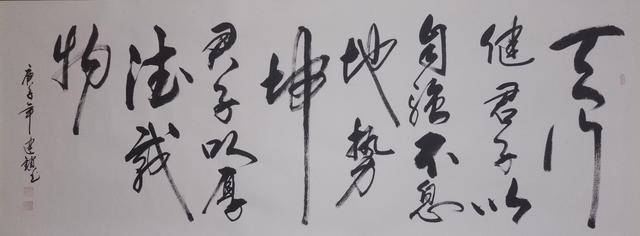 天行
健君子以
自强不息
地势
坤
君子以厚
德载
物
庚子年建